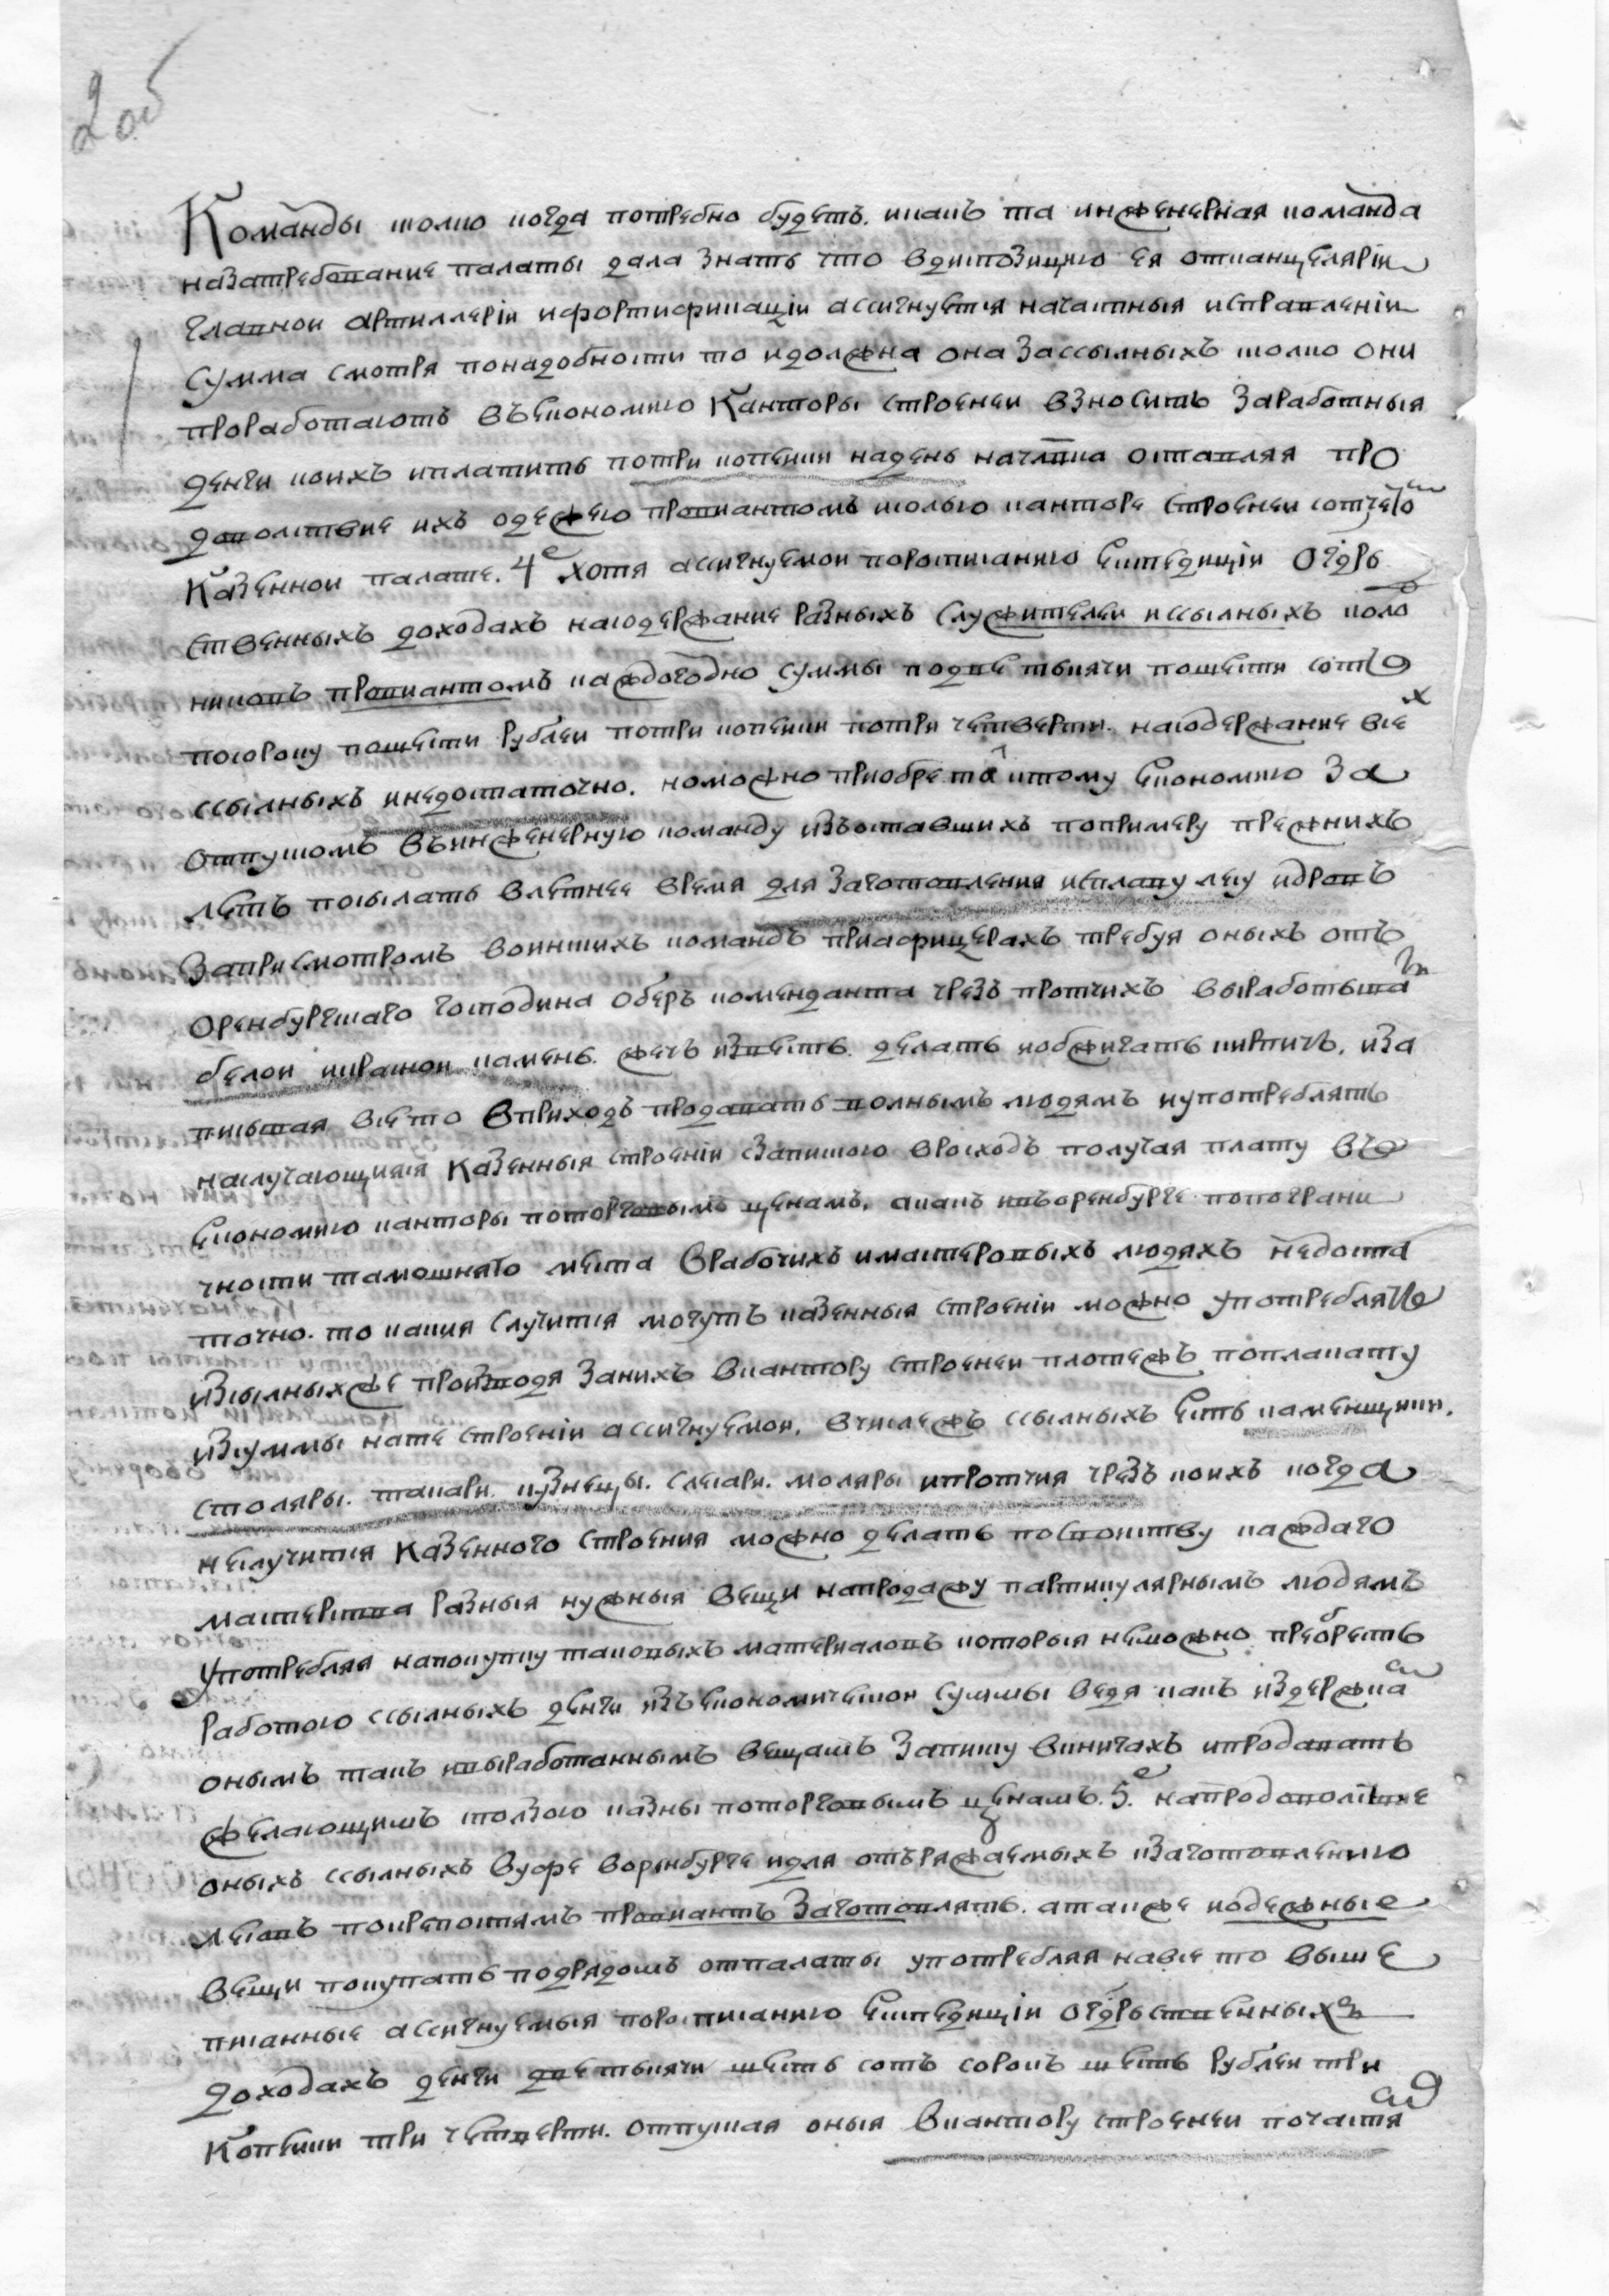 2об
Команды толко когда потребно будетъ. икакъ та инженерная команда
назатребование палаты дала знать что вдипозицию ея отканцелярiи
главнои артиллерiи ифортификацiи ассигнуется начастныя исправленiи
сумма смотря понадобности то идолжна она зассыльныхъ толко они
проработаютъ въекономию Канторы строенеи взносить заработныя
денги коихъ иплатить потри копеики надень начлвка оставляя про
доволствие ихъ одежею провиантомъ толко канторе строенеи сотчето
Казеннои палате. 4е хотя ассигнуемои поросписанию експедицiи огдрь
ственныхъ доходахъ насодержание разныхъ служителеи иссылныхъ коло
никовъ провиантомъ каждогодно суммы подве тысячи пошести сотъ
посороку пошести рублеи потри копеики потри четверти. насодержание всехъ
ссылныхъ инедостаточно. номожно приобрета ктому економию за
отпуском въинженерную команду изъоставшихъ попримеру прежнихъ
летъ посылать влетнее время для заготовления исплаву лесу идровъ
заприсмотромъ воинскихъ командъ приафицерахъ требуя оныхъ отъ
Оренбургскаго господина оберъ коменданта чрезъ протчихъ выработыва
белои икраснои камень. жечь известь. делать иобжигать кирпичь. иза
писывая всето вприходъ продавать волнымъ людямъ иупотреблять
наслучающияся казенныя строенiи запискою врасходъ получая плату въ
економию канторы поторговымъ ценамъ, акакъ ивъоренбурге попограни
чности тамошняго места врабочихъ имастеровыхъ людяхъ недоста
точно. то какия случится могутъ казенныя строенiи можно употреблять
изсылныхже производя заних вкантору строенеи платежъ поплакату
изсуммы нате строенiи ассигнуемои. вчислежъ ссылныхъ есть каменщики.
столяры. токари. кузнецы. слесари. моляры ипротчия чрезъ коихъ когда
неслучится казенного строения можно делать посвоиству каждаго
мастерства разныя нужныя вещи напродажу партикулярнымъ людямъ
употребляя напокупку таковыхъ материаловъ которыя неможно преобреть
работою ссылныхъ денги изъекономическои суммы ведя какъ издержкамъ
онымъ такъ ивыработаннымъ вещамъ записку вкнигахъ ипродавать
желающимъ сползою казны поторговымъ ценамъ. 5е. напродоволствие
оныхъ ссылныхъ вуфе воренбурге идля отъряжаемыхъ кзаготовлению
лесовъ покрепостямъ провиантъ заготовлять. атакже иодежные
вещи покупать подрядомъ отпалаты употребляя навсе то выше
писанные ассигнуемыя поросписанию експедицiи огдрьственныхъ
доходахъ денги две тысячи шесть сотъ сорокъ шесть рублеи три
копеики три четверти. отпуская оныя вкантору строенеи почастям